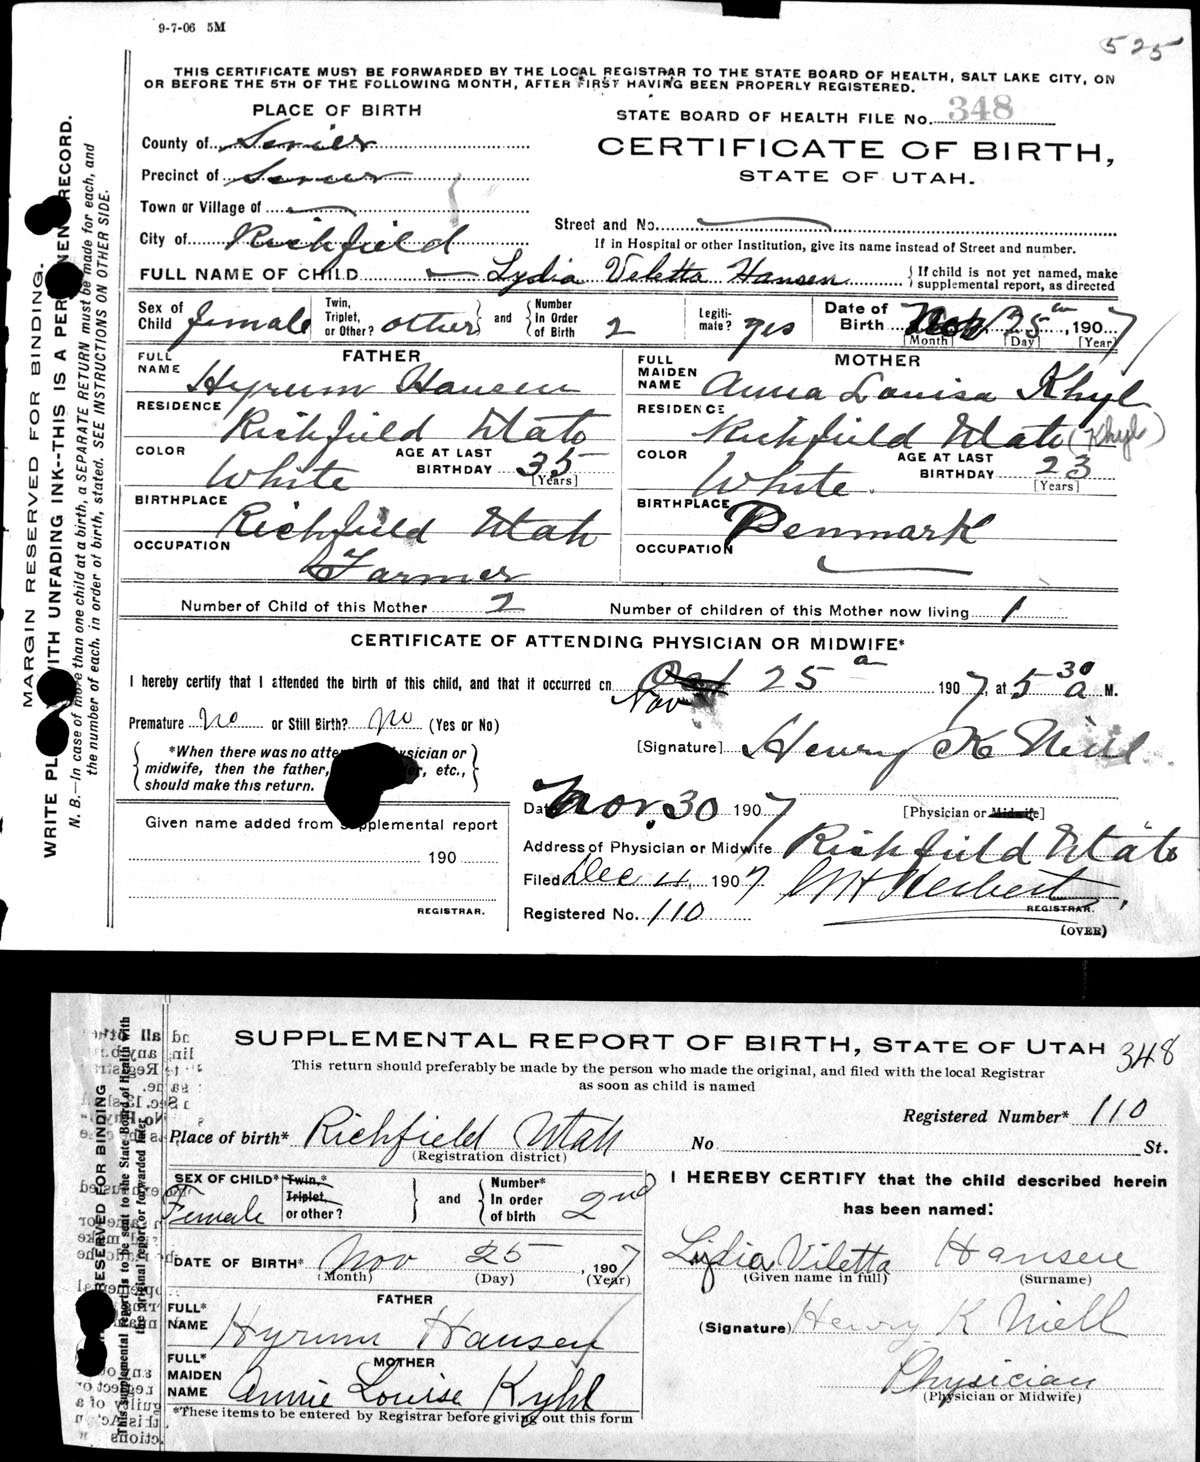 9-7-06 5M
525
THIS CERTIFICATE MUST BE FORWARDED BY THE LOCAL REGISTRAR TO THE STATE BOARD OF HEALTH, SALT LAKE CITY, ON
OR BEFORE THE 5TH OF THE FOLLOWING MONTH, AFTER FIRST HAVING BEEN PROPERLY REGISTERED.
PLACE OF BIRTH
STATE BOARD OF HEALTH FILE NO. 348
County of Sevier
CERTIFICATE OF BIRTH,
Precinct of Sevier
STATE OF UTAH.
Town or Village of
Street and No.
City of Richfield
If in Hospital or other Institution, give its name instead of Street and number.
FULL NAME OF CHILD Lydia Veletta Hansen { If child is not yet named, make supplemental report, as directed
Sex of Child female Twin, Triplet, or Other? other } and { Number in Order of Birth 2 Legitimate? yes Date of Birth Nov 25, 1907
[Month] [Day] [Year]
FATHER
MOTHER
FULL NAME Hyrum Hansen
FULL MAIDEN NAME Anna Louisa Khyl
RESIDENCE Richfield Utah
RESIDENCE Richfield Utah (Khyl)
COLOR White AGE AT LAST BIRTHDAY 35 [Years]
COLOR White. AGE AT LAST BIRTHDAY 23 [Years]
BIRTHPLACE Richfield Utah
BIRTHPLACE Denmark
OCCUPATION Farmer
OCCUPATION
Number of Child of this Mother 2
Number of children of this Mother now living 1
CERTIFICATE OF ATTENDING PHYSICIAN OR MIDWIFE*
I hereby certify that I attended the birth of this child, and that it occurred on Oct Nov 25 a 1907, at 5 30 a M.
Premature no or Still Birth? no (Yes or No)
[Signature] Henry K Neill
*When there was no physician or
midwife, then the father, etc.,
should make this return.
Date Nov. 30 1907
[Physician or Midwife]
Given name added from supplemental report
Address of Physician or Midwife Richfield Utah
190
Filed Dec 4, 1907
Herbert,
REGISTRAR.
Registered No. 110
REGISTRAR.
(OVER)
MARGIN RESERVED FOR BINDING.
WRITE WITH UNFADING INK--THIS IS A RECORD.
N. B.—In case of more than one child at a birth, a SEPARATE RETURN must be made for each, and
the number of each, in order of birth, stated. SEE INSTRUCTIONS ON OTHER SIDE.
SUPPLEMENTAL REPORT OF BIRTH, STATE OF UTAH 348
This return should preferably be made by the person who made the original, and filed with the local Registrar
as soon as child is named
Registered Number* 110
Place of birth* Richfield Utah No. St.
(Registration district)
SEX OF CHILD* Female Twin,* Triplet, or other? } and { Number* In order of birth 2nd
I HEREBY CERTIFY that the child described herein
has been named:
DATE OF BIRTH* Nov 25, 1907
(Month) (Day) (Year)
Lydia Viletta Hansen
(Given name in full) (Surname)
FATHER
FULL* NAME Hyrum Hansen
(Signature) Henry K Niell
MOTHER
FULL* MAIDEN NAME Annie Louise Kyhl
Physician
(Physician or Midwife)
*These items to be entered by Registrar before giving out this form
RESERVED FOR BINDING
This supplemental report is to be sent to the State Board of Health with
the original report or forwarded later.